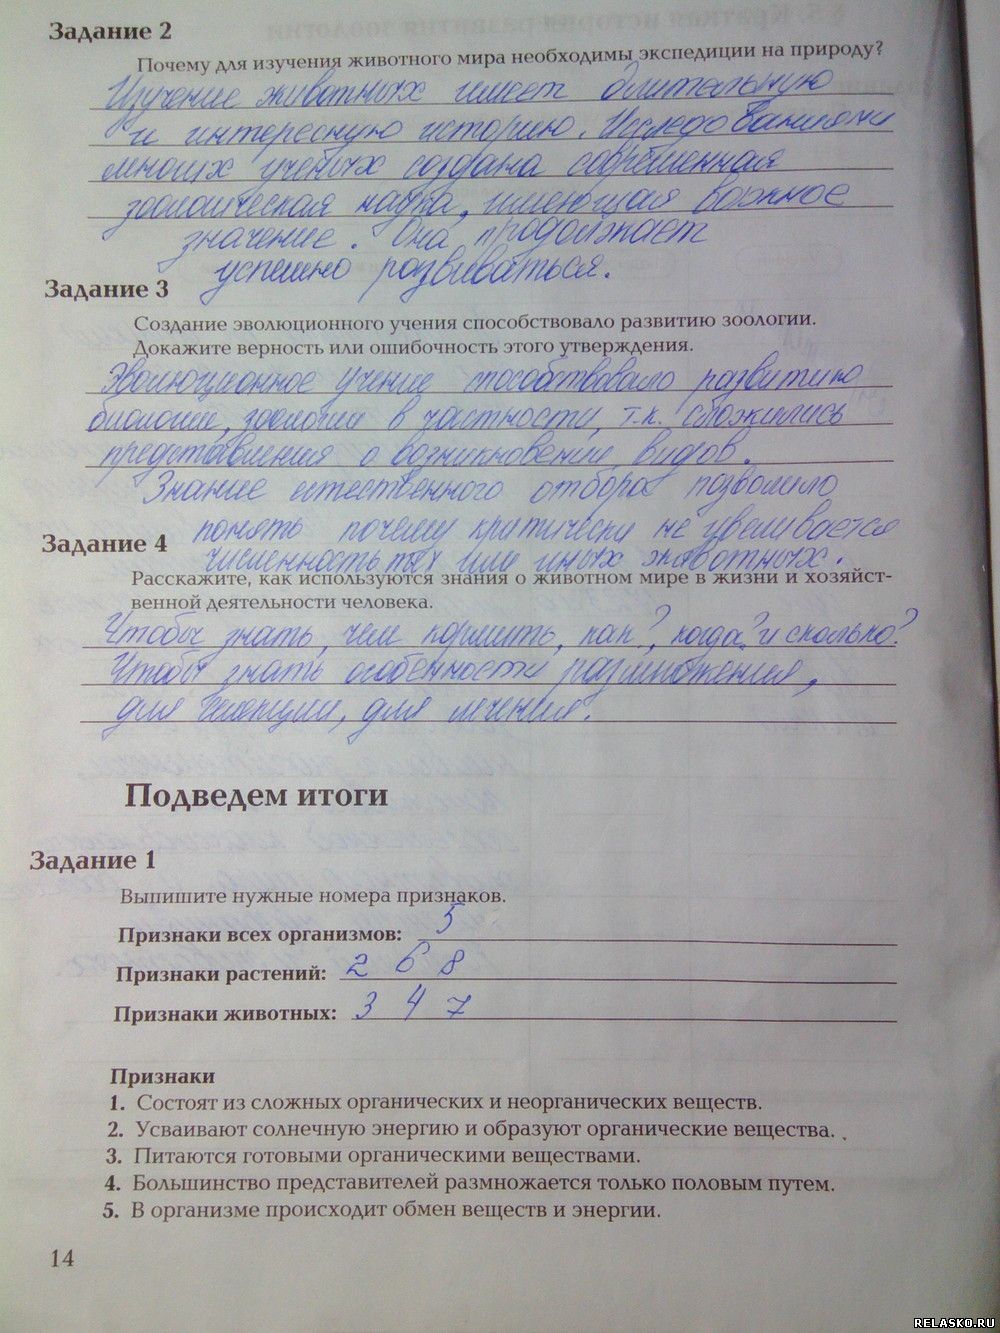 Задание 2
Почему для изучения животного мира необходимы экспедиции на природу?
Изучение животных имеет длительную
и интересную историю. Исследованиями
многих учёных создана современная
зоологическая наука, имеющая важное
значение. Она продолжает
успешно развиваться.
Задание 3
Создание эволюционного учения способствовало развитию зоологии.
Докажите верность или ошибочность этого утверждения.
Эволюционное учение способствовало развитию
биологии, зоологии в частности, т.к. сложились
представления о возникновении видов.
Знание естественного отбора позволило
понять почему критически не увеличивается
численность тех или иных животных.
Задание 4
Расскажите, как используются знания о животном мире в жизни и хозяйст-
венной деятельности человека.
Чтобы знать, чем кормить, как?, когда? и сколько?
Чтобы знать особенности размножения,
для селекции, для лечения.
Подведем итоги
Задание 1
Выпишите нужные номера признаков.
Признаки всех организмов: 5
Признаки растений: 2 6 8
Признаки животных: 3 4 7
Признаки
1. Состоят из сложных органических и неорганических веществ.
2. Усваивают солнечную энергию и образуют органические вещества.
3. Питаются готовыми органическими веществами.
4. Большинство представителей размножается только половым путем.
5. В организме происходит обмен веществ и энергии.
14
RELASKO.RU